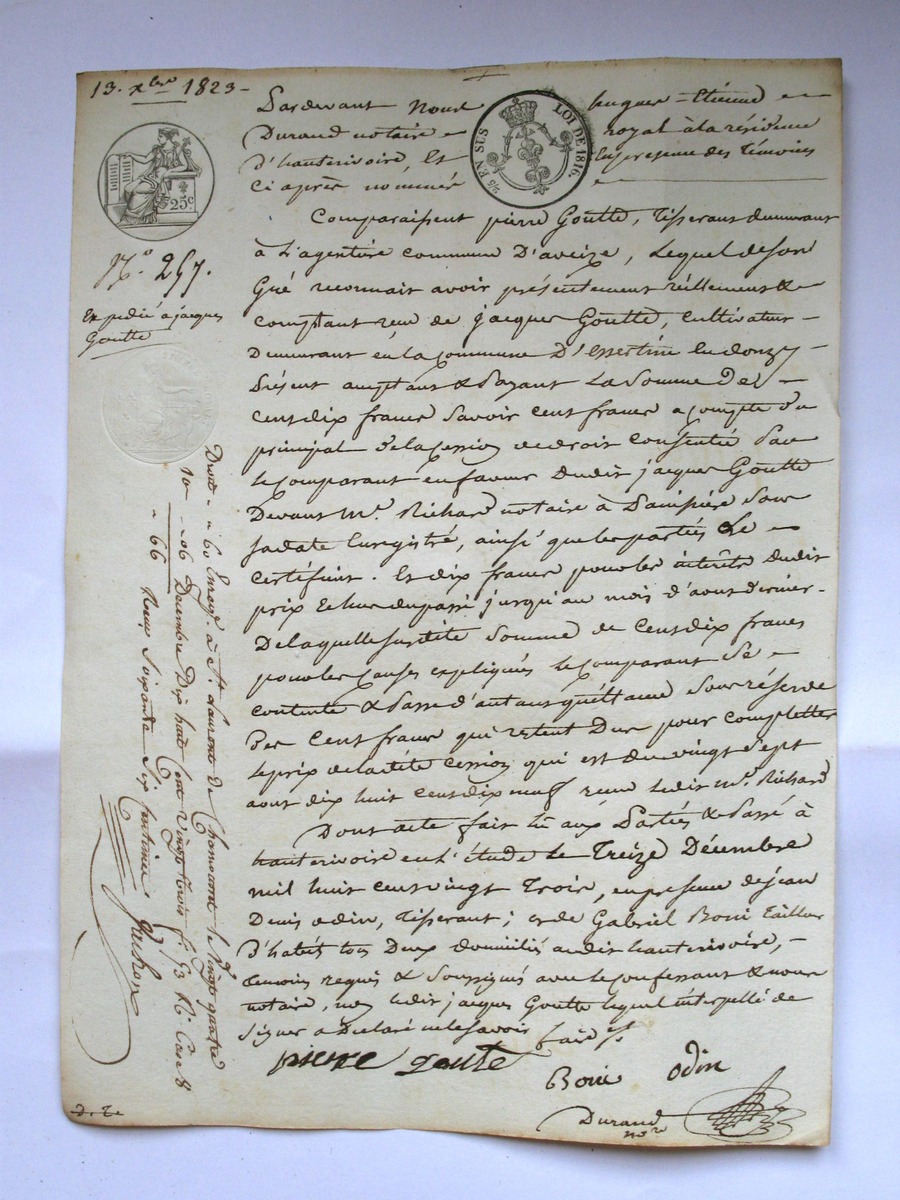 13. xbre 1823 -
25c
2/5 EN SUS LOI DE 1816.
N.o 257.
Expédié à jacques
Goutte
Pardevant Nous hugues-Etienne
Durand notaire royal à la résidence
D'hauterivoire, Et En presence des Témoins
Ci après nommés
Comparaissent pierre Goutte, Tisserant demeurant
à L'agentière commune D'aveize, Lequel de son
Gré reconnait avoir présentement réellement &
comptant reçu de jacques Goutte, Cultivateur
Demeurant en la Commune D'Essertine En donzy
présent acceptant & payant La Somme De
Cent dix francs Savoir Cent francs a compte du
principal De la Cession de droit Consentie par
le Comparant en faveur dudit jacques Goutte
Devant Me. Richard notaire à Panissière Sous
sa date Enregistré, ainsi que les parties Le
Certifient. Et dix francs pour les intérêts dudit
prix Echus du passé jusqu'au mois d'aout dernier
De laquelle susdite Somme de Cent dix francs
pour les Causes expliqués le Comparant Se
contente & Passe d'autant quittance Sous réserve
Des Cent francs qui restent Dus pour Completter
Le prix de ladite Cession qui est du vingt Sept
aout dix huit Cent dix neuf reçue ledit Me. Richard
Dont acte fait Lu aux Parties & Passé à
hauterivoire en L'étude Le Treize Décembre
mil huit Cent vingt Trois, en presence de jean
Denis odin, Tisserant; et de Gabriel Boni Tailleur
D'habits tous Deux domiciliés audit hauterivoire,
temoins requis & Soussignés avec le Confessant & nous
notaire, non ledit jacques Goutte lequel interpellé de
Signer a Déclaré ne le Savoir faire
pierre goute
Boni odin
Durand
nore
Droit - " 60 Enregt. à St. Laurent de Chamousset le vingt quatre
10e - " 06 Decembre Dix huit Cent vingt trois f. 53 Ro. Case 8
" 66 Reçu Soixante Six Centimes
d. Te